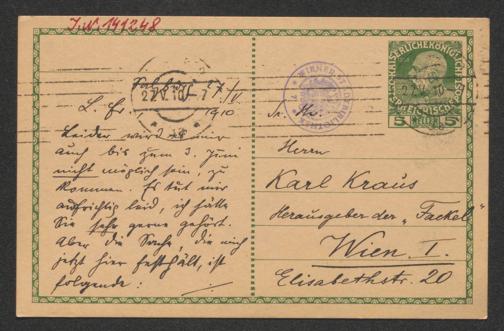 I.N. 141248
L. Hr. 1910
Leider wird es mir
auch bis zum 3. Juni
nicht möglich sein, zu
kommen. Es tut mir
aufrichtig leid, ich hätte
Sie sehr gerne gehört.
Aber die Sache, die mich
jetzt hier festhält, ist
folgende:
22.V.10 7
WIENER
22.V.10
5 5
Herrn
Karl Kraus
Herausgeber der „Fackel"
Wien, I.
Elisabethstr. 20